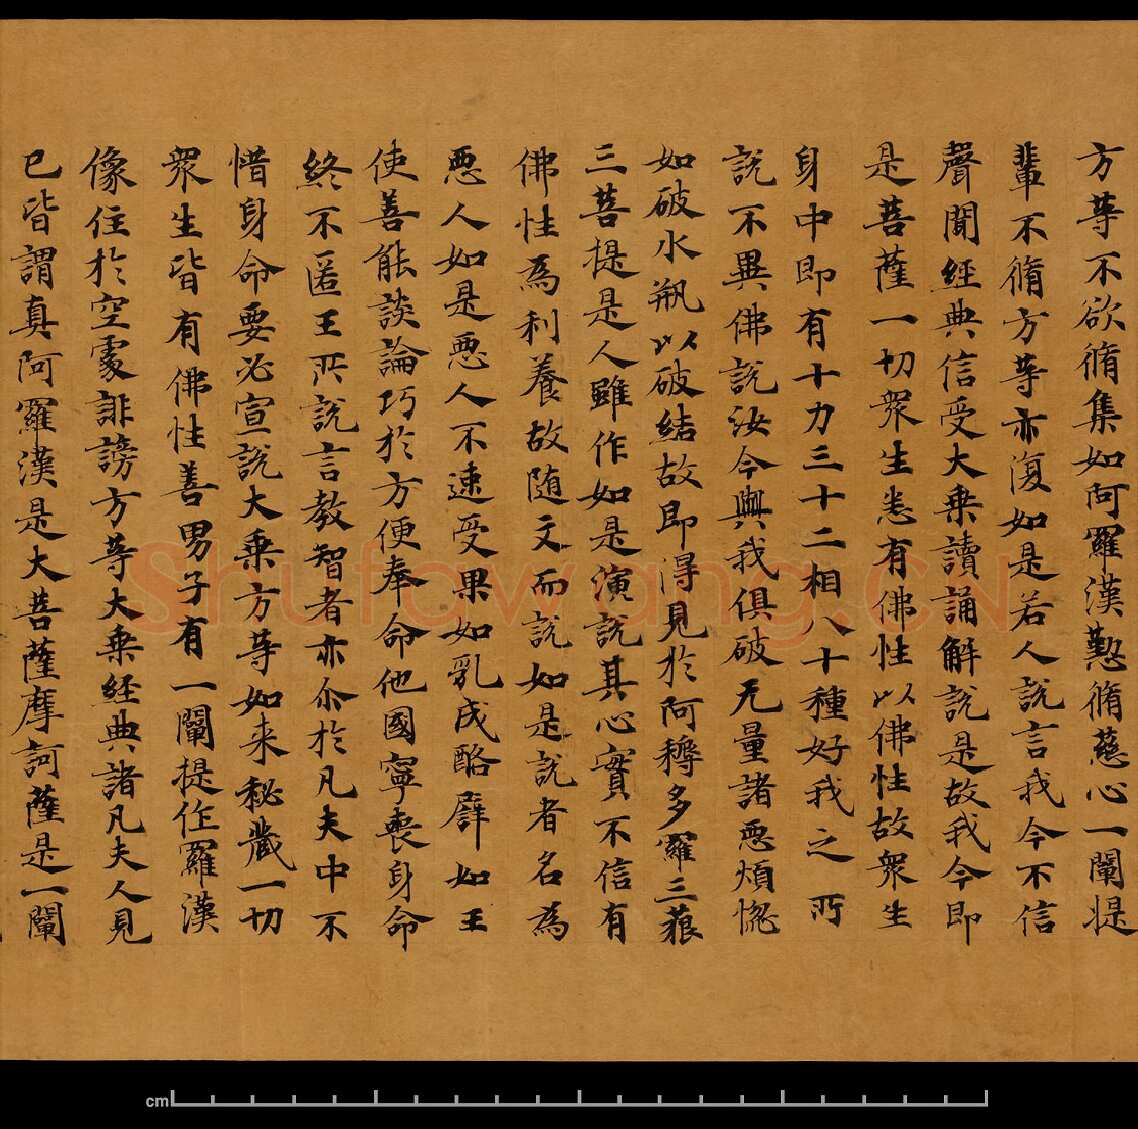 方等不欲脩集如阿羅漢懃脩慈心一闡提
輩不脩方等亦復如是若人說言我今不信
聲聞經典信受大乘讀誦解說是故我今即
是菩薩一切衆生悉有佛性以佛性故衆生
身中即有十力三十二相八十種好我之所
說不異佛說汝今與我俱破无量諸惡煩惚
如破水瓶以破結故即得見於阿耨多羅三藐
三菩提是人雖作如是演說其心實不信有
佛性為利養故隨文而說如是說者名為
惡人如是惡人不速受果如乳成酪譬如王
使善能談論巧於方便奉命他國寧喪身命
終不匿王所說言教智者亦尒於凡夫中不
惜身命要必宣說大乘方等如来秘藏一切
衆生皆有佛性善男子有一闡提作羅漢
像住於空處誹謗方等大乘經典諸凡夫人見
已皆謂真阿羅漢是大菩薩摩訶薩是一闡
Shufawang.cn
cm